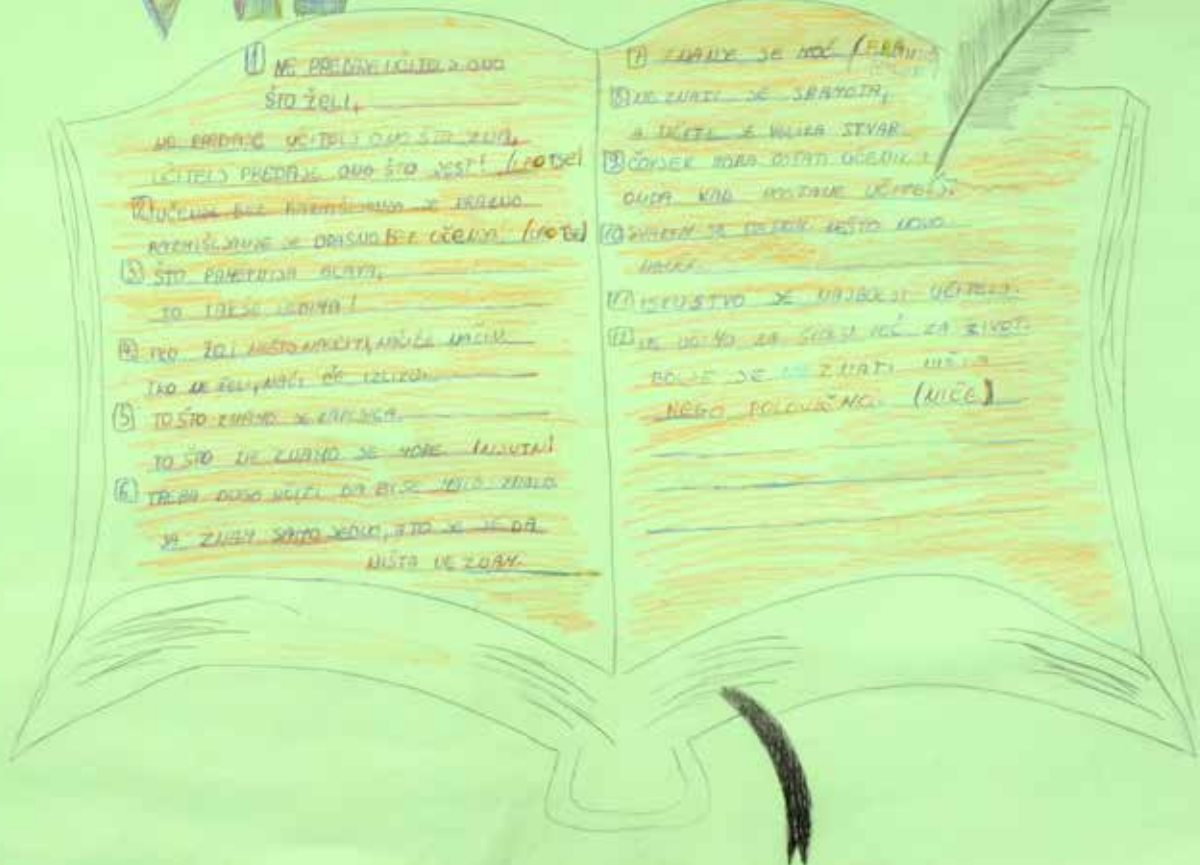 1 NE PREDAJE UČITELJ ONO
ŠTO ŽELI,
NE PREDAJE UČITELJ ONO ŠTO ZNA,
UČITELJ PREDAJE ONO ŠTO JEST! (LAO TSE)
2 UČENJE BEZ RAZMIŠLJANJA JE PRAZNO
RAZMIŠLJANJE JE OPASNO BEZ UČENJA (LAO TSE)
3 ŠTO PAMETNIJA GLAVA,
TO LAKŠE
4 TKO ŽELI NEŠTO NAUČITI, NAĆI ĆE NAČIN
TKO NE ŽELI, NAĆI ĆE IZLIKU.
5 TO ŠTO ZNAMO JE KAPLJICA.
TO ŠTO NE ZNAMO JE MORE (NJUTN)
6 TREBA DUGO UČITI DA BI SE MALO ZNALO
JA ZNAM SAMO JEDNO, A TO JE DA
NIŠTA NE ZNAM.
7 ZNANJE JE MOĆ
8 NE ZNATI JE SRAMOTA,
A UČITI JE VELIKA STVAR.
9 ČOVJEK MORA OSTATI UČENIK I
ONDA KAD POSTANE UČITELJ.
10 SVAKIM SE DANOM NEŠTO NOVO
NAUČI.
11 ISKUSTVO JE NAJBOLJI UČITELJ.
12 NE UČIMO ZA ŠKOLU VEĆ ZA ŽIVOT.
BOLJE JE NE ZNATI NIŠTA
NEGO POLOVIČNO. (NIČE)